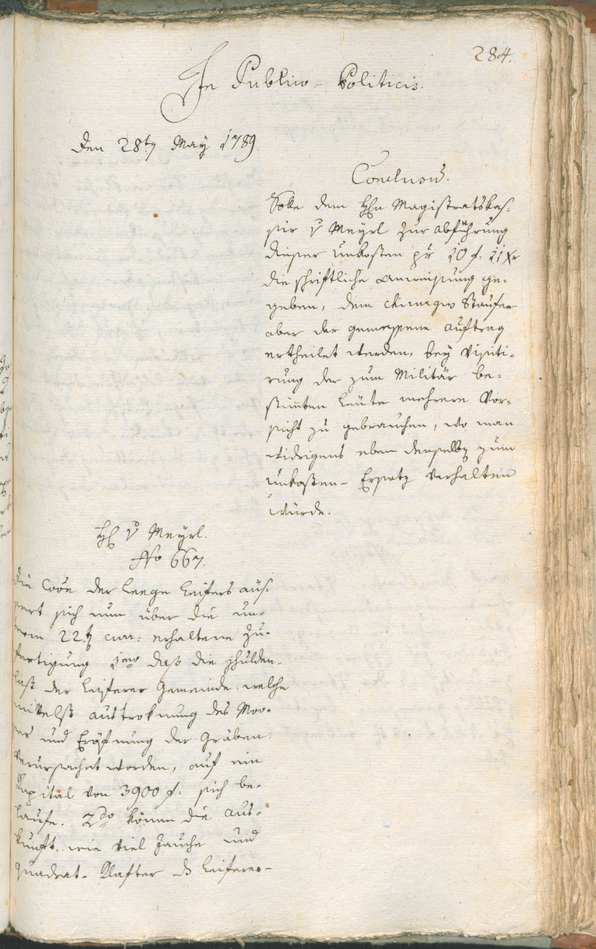 284.
In Publico-Politicis.
den 28ty May 1789.
Conclusum.
Solle dem Hhn Magistratskas-
sir v Meyrl zur abführung
dieser unkosten pr 10 f. 21 xr
die schriftliche anweisung ge-
geben, dem chirurgo Staufer
aber der gemessene auftrag
ertheilet werden, bey Visiti-
rung der zum Militär be-
stimten Leüte mehrere Vor-
sicht zu gebrauchen, wo man
widrigens eben denselben zum
unkosten-Ersatz verhalten
würde.
Hh v Meyrl.
No 667.
die Löbe der Leege Leifers aüs-
sert sich nun über die un-
term 22t curr: erhaltene Zu-
fertigung 1mo daß die schulden-
last der Leiferer Gemeinde, welche
mittelst austroknung des Moo-
ses und Eröfnung der Gräben
verursachet worden, auf ein
Kapital von 3900 f. sich be-
laufe. 2do könne die aus-
kunft, wie viel Jauche und
quadrat-Klafter die Leiferer-